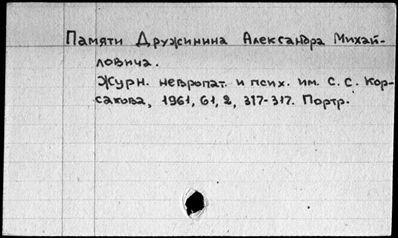 Памяти Дружинина Александра Михай-
ловича.
Журн. невропат. и псих. им. С. С. Кор-
сакова, 1961, 61, 2, 317-317. Портр.